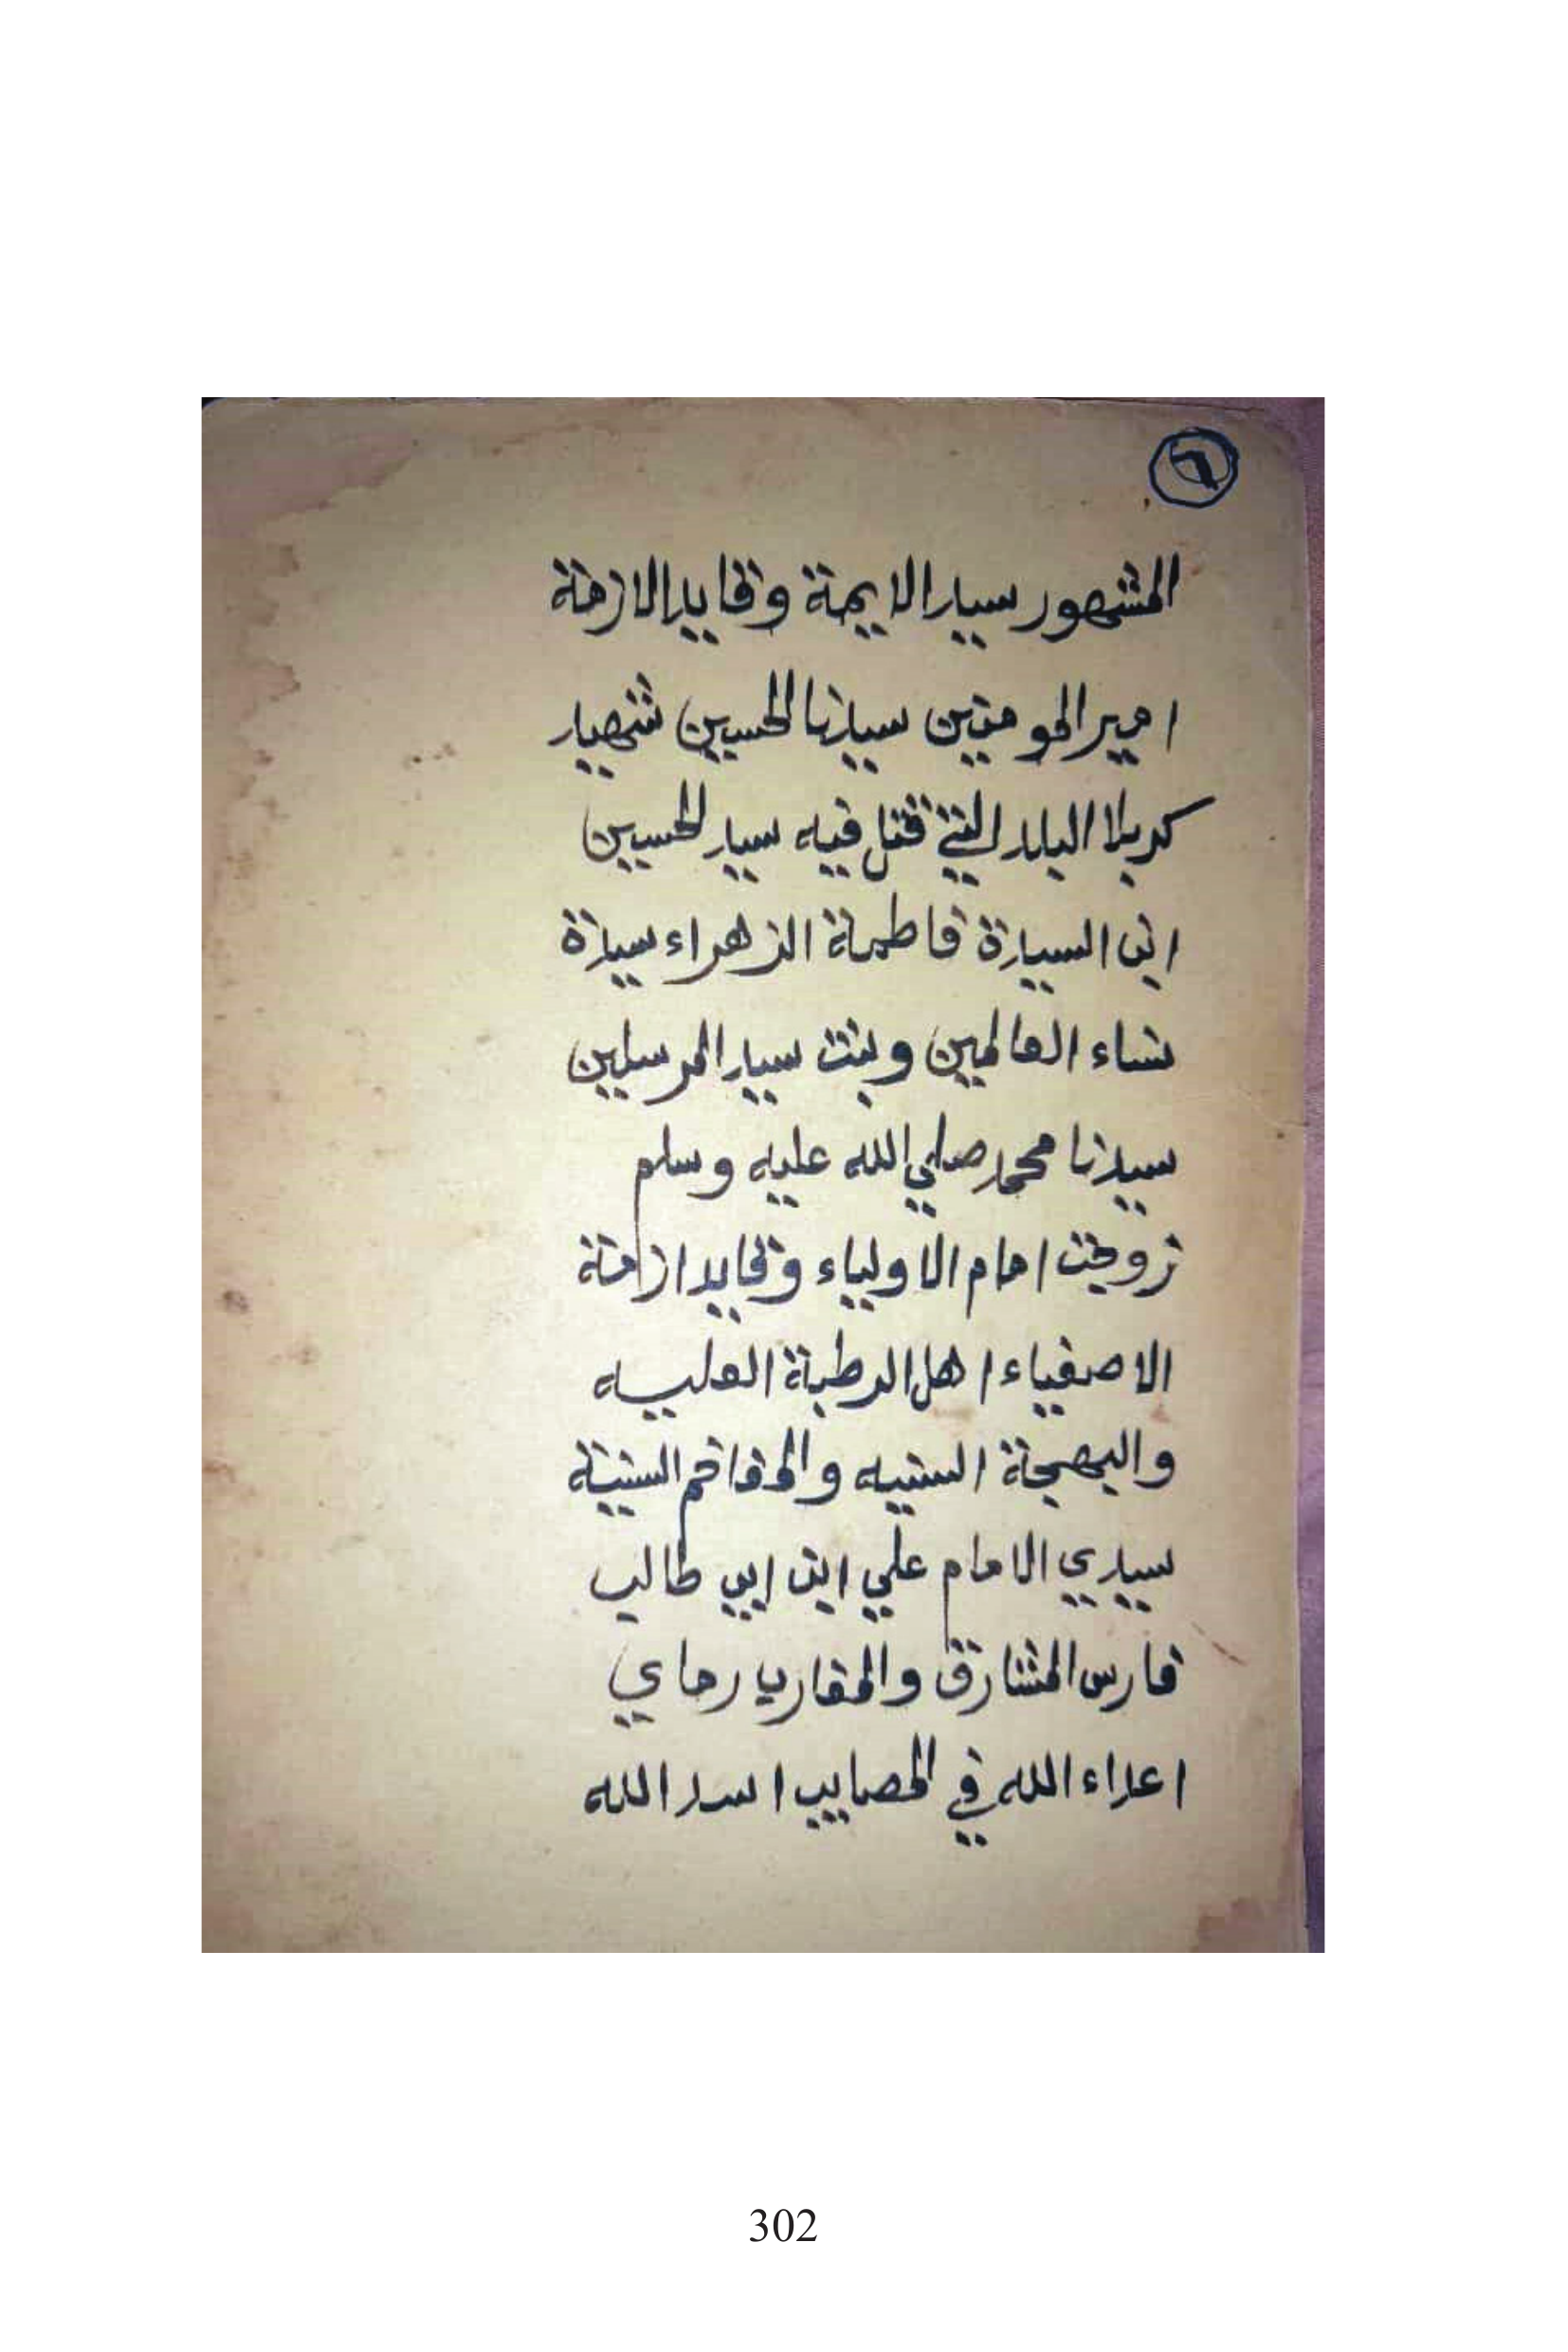 ٦
المشهور سيد الايمة وقايد الازمة
امير المومنين سيدنا الحسين شهيد
كربلا البلد التي قتل فيه سيد الحسين
ابن السيدة فاطمة الزهراء سيدة
نساء العالمين وبنت سيد المرسلين
سيدنا محمد صلي الله عليه وسلم
زوجت امام الاولياء وقايد ازمة
الاصفياء اهل الرطبة العليه
والبهجة السنيه والمفاخم السنية
سيدي الامام علي ابن ابي طالب
فارس المشارق والمغارب رماي
اعداء الله في المصايب اسد الله
302